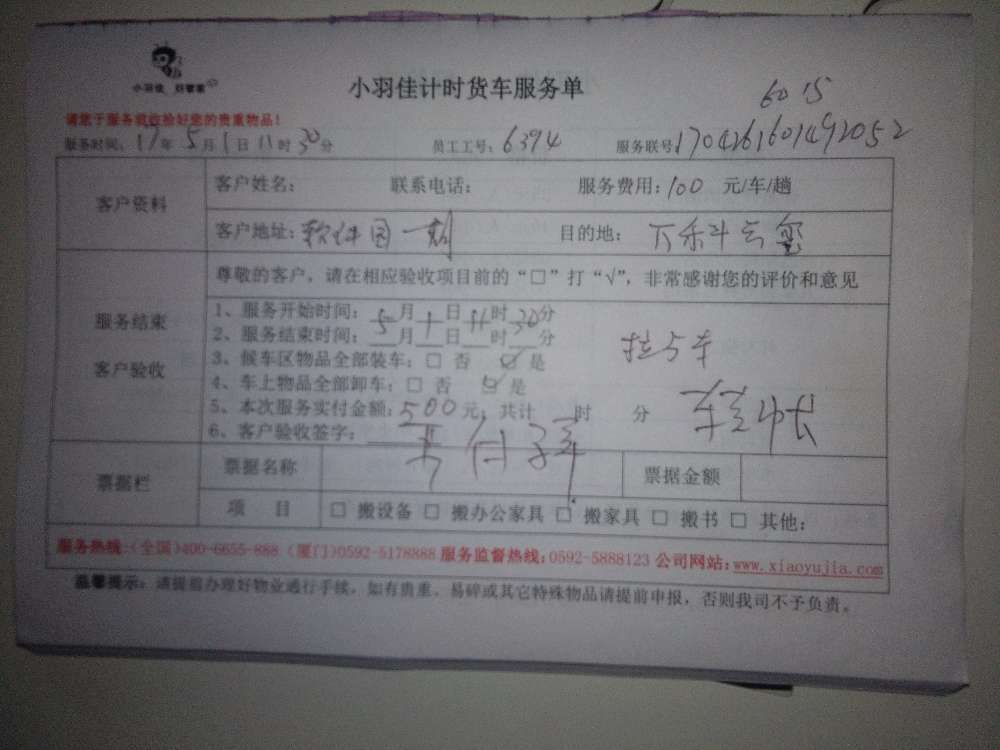 小羽佳 好管家
小羽佳计时货车服务单
6015
请您于服务前收拾好您的贵重物品！
服务时间：17年5月1日11时30分 员工工号：6394 服务联号170426160149205２
客户资料
客户姓名： 联系电话： 服务费用：100 元/车/趟
客户地址：软件园一期 目的地：万科云玺
尊敬的客户，请在相应验收项目前的“□”打“√”，非常感谢您的评价和意见
服务结束
客户验收
1、服务开始时间：5月1日11时30分
2、服务结束时间：__月__日__时__分
3、候车区物品全部装车：□ 否 ☑ 是
4、车上物品全部卸车：□ 否 ☑ 是
拉5车
5、本次服务实付金额：500元；共计 时 分
6、客户验收签字：
票据栏
票据名称 票据金额
项 目 □ 搬设备 □ 搬办公家具 □ 搬家具 □ 搬书 □ 其他：
服务热线：(全国)400-6655-888 (厦门)0592-5178888 服务监督热线：0592-5888123 公司网站：www.xiaoyujia.com
温馨提示：请提前办理好物业通行手续，如有贵重、易碎或其它特殊物品请提前申报，否则我司不予负责。